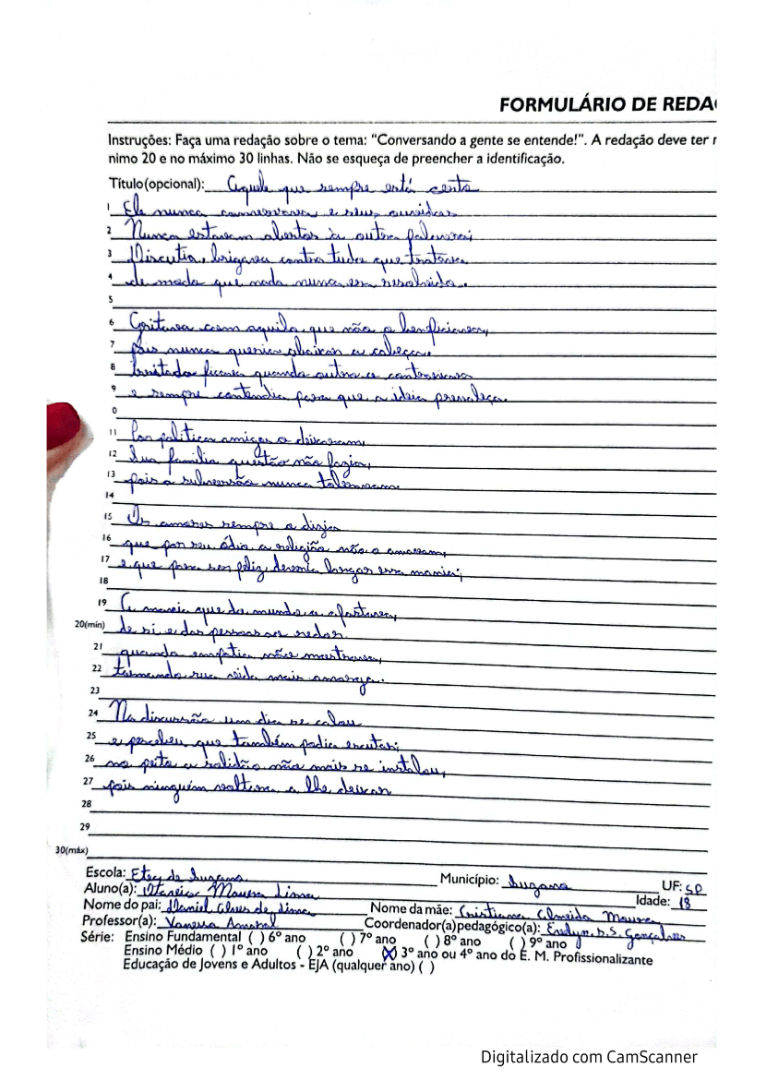 FORMULÁRIO DE REDA
Instruções: Faça uma redação sobre o tema: "Conversando a gente se entende!". A redação deve ter
nimo 20 e no máximo 30 linhas. Não se esqueça de preencher a identificação.
Título(opcional): Aquele que sempre está certo
1 Ele nunca conversava e seus ouvidos
2 Nunca estavam abertos à outra palavra;
3 Discutia, brigava contra tudo que tratava
4 de modo que nada nunca era resolvido.
5
6 Gritava com aquilo que não o beneficiava,
7 pois nunca queria abaixar a cabeça.
8 Irritado ficava quando outro o contrariava
9 e sempre contendia para que a ideia prevaleça.
0
11 Por política amigos o deixaram,
12 Sua família questão não fazia,
13 pois a subversão nunca toleraram.
14
15 Os amores sempre o dizia
16 que por seu ódio a religião não o amavam,
17 e que para ser feliz, deveria largar essa mania;
18
19 A mania que do mundo o afastava,
20(mín) de si e das pessoas ao redor
21 quando empatia não mostrava,
22 tornando sua vida mais amarga.
23
24 Na discussão um dia se calou
25 e percebeu que também podia escutar;
26 no peito a solidão não mais se instalou,
27 pois ninguém voltava a lhe deixar
28
29
30(máx)
Escola: Etec de Suzano Município: Suzano UF: SP
Aluno(a): Moura Lima Idade: 18
Nome do pai: Daniel Alves de Lima Nome da mãe: Cristiane Almeida Moura
Professor(a): Vanessa Coordenador(a)pedagógico(a): Evelyn. S. Gonçalves
Série: Ensino Fundamental ( ) 6º ano ( ) 7º ano ( ) 8º ano ( ) 9º ano
Ensino Médio ( ) 1º ano ( ) 2º ano (X) 3º ano ou 4º ano do E. M. Profissionalizante
Educação de Jovens e Adultos - EJA (qualquer ano) ( )
Digitalizado com CamScanner